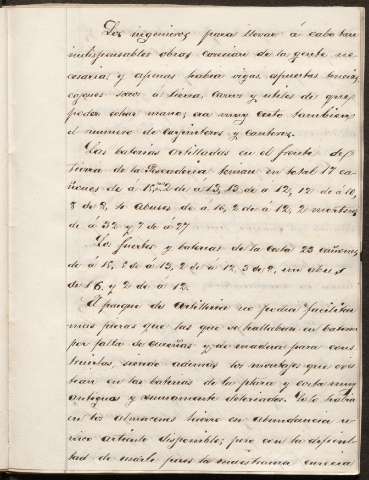 Los ingenieros para llevar á cabo tan
indispensables obras carecian de la gente ne
cesaria; y apenas habia vigas, espuertas,
cajones, sacos á tierra, carros y utiles de que
poder echar mano; era muy corto tambien
el numero de carpinteros y canteros.
Las baterias artilladas en el frente de
tierra de la Pescaderia, tenian en total 17 ca
ñones de á 13 de á 12, 12 de á 10,
8 de 8, 4 obuses de á 16, 2 de á 12, 2 morteros
de á 32 y 7 de á 27
Los fuertes y baterias de la costa 23 cañones
de á 15, 8 de á 13, 2 de á 12, 3 de 8, un obus
de 16 y 2 de á 12.
El parque de artilleria no podia facilitar
mas piezas que las que se hallaban en bateria
por falta de cureñas y de madera para cons
truirlas, siendo además los montajes que exis
tian en las baterias de la plaza y costa muy
antiguos y sumamente deteriorados. Solo habia
en los almacenes hierro en abundancia u
nico articulo disponible; pero con la dificul
tad de que para la maestranza carecia